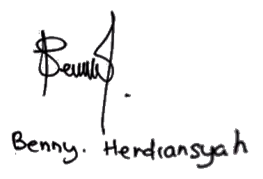 Benny
Benny. Herdiansyah